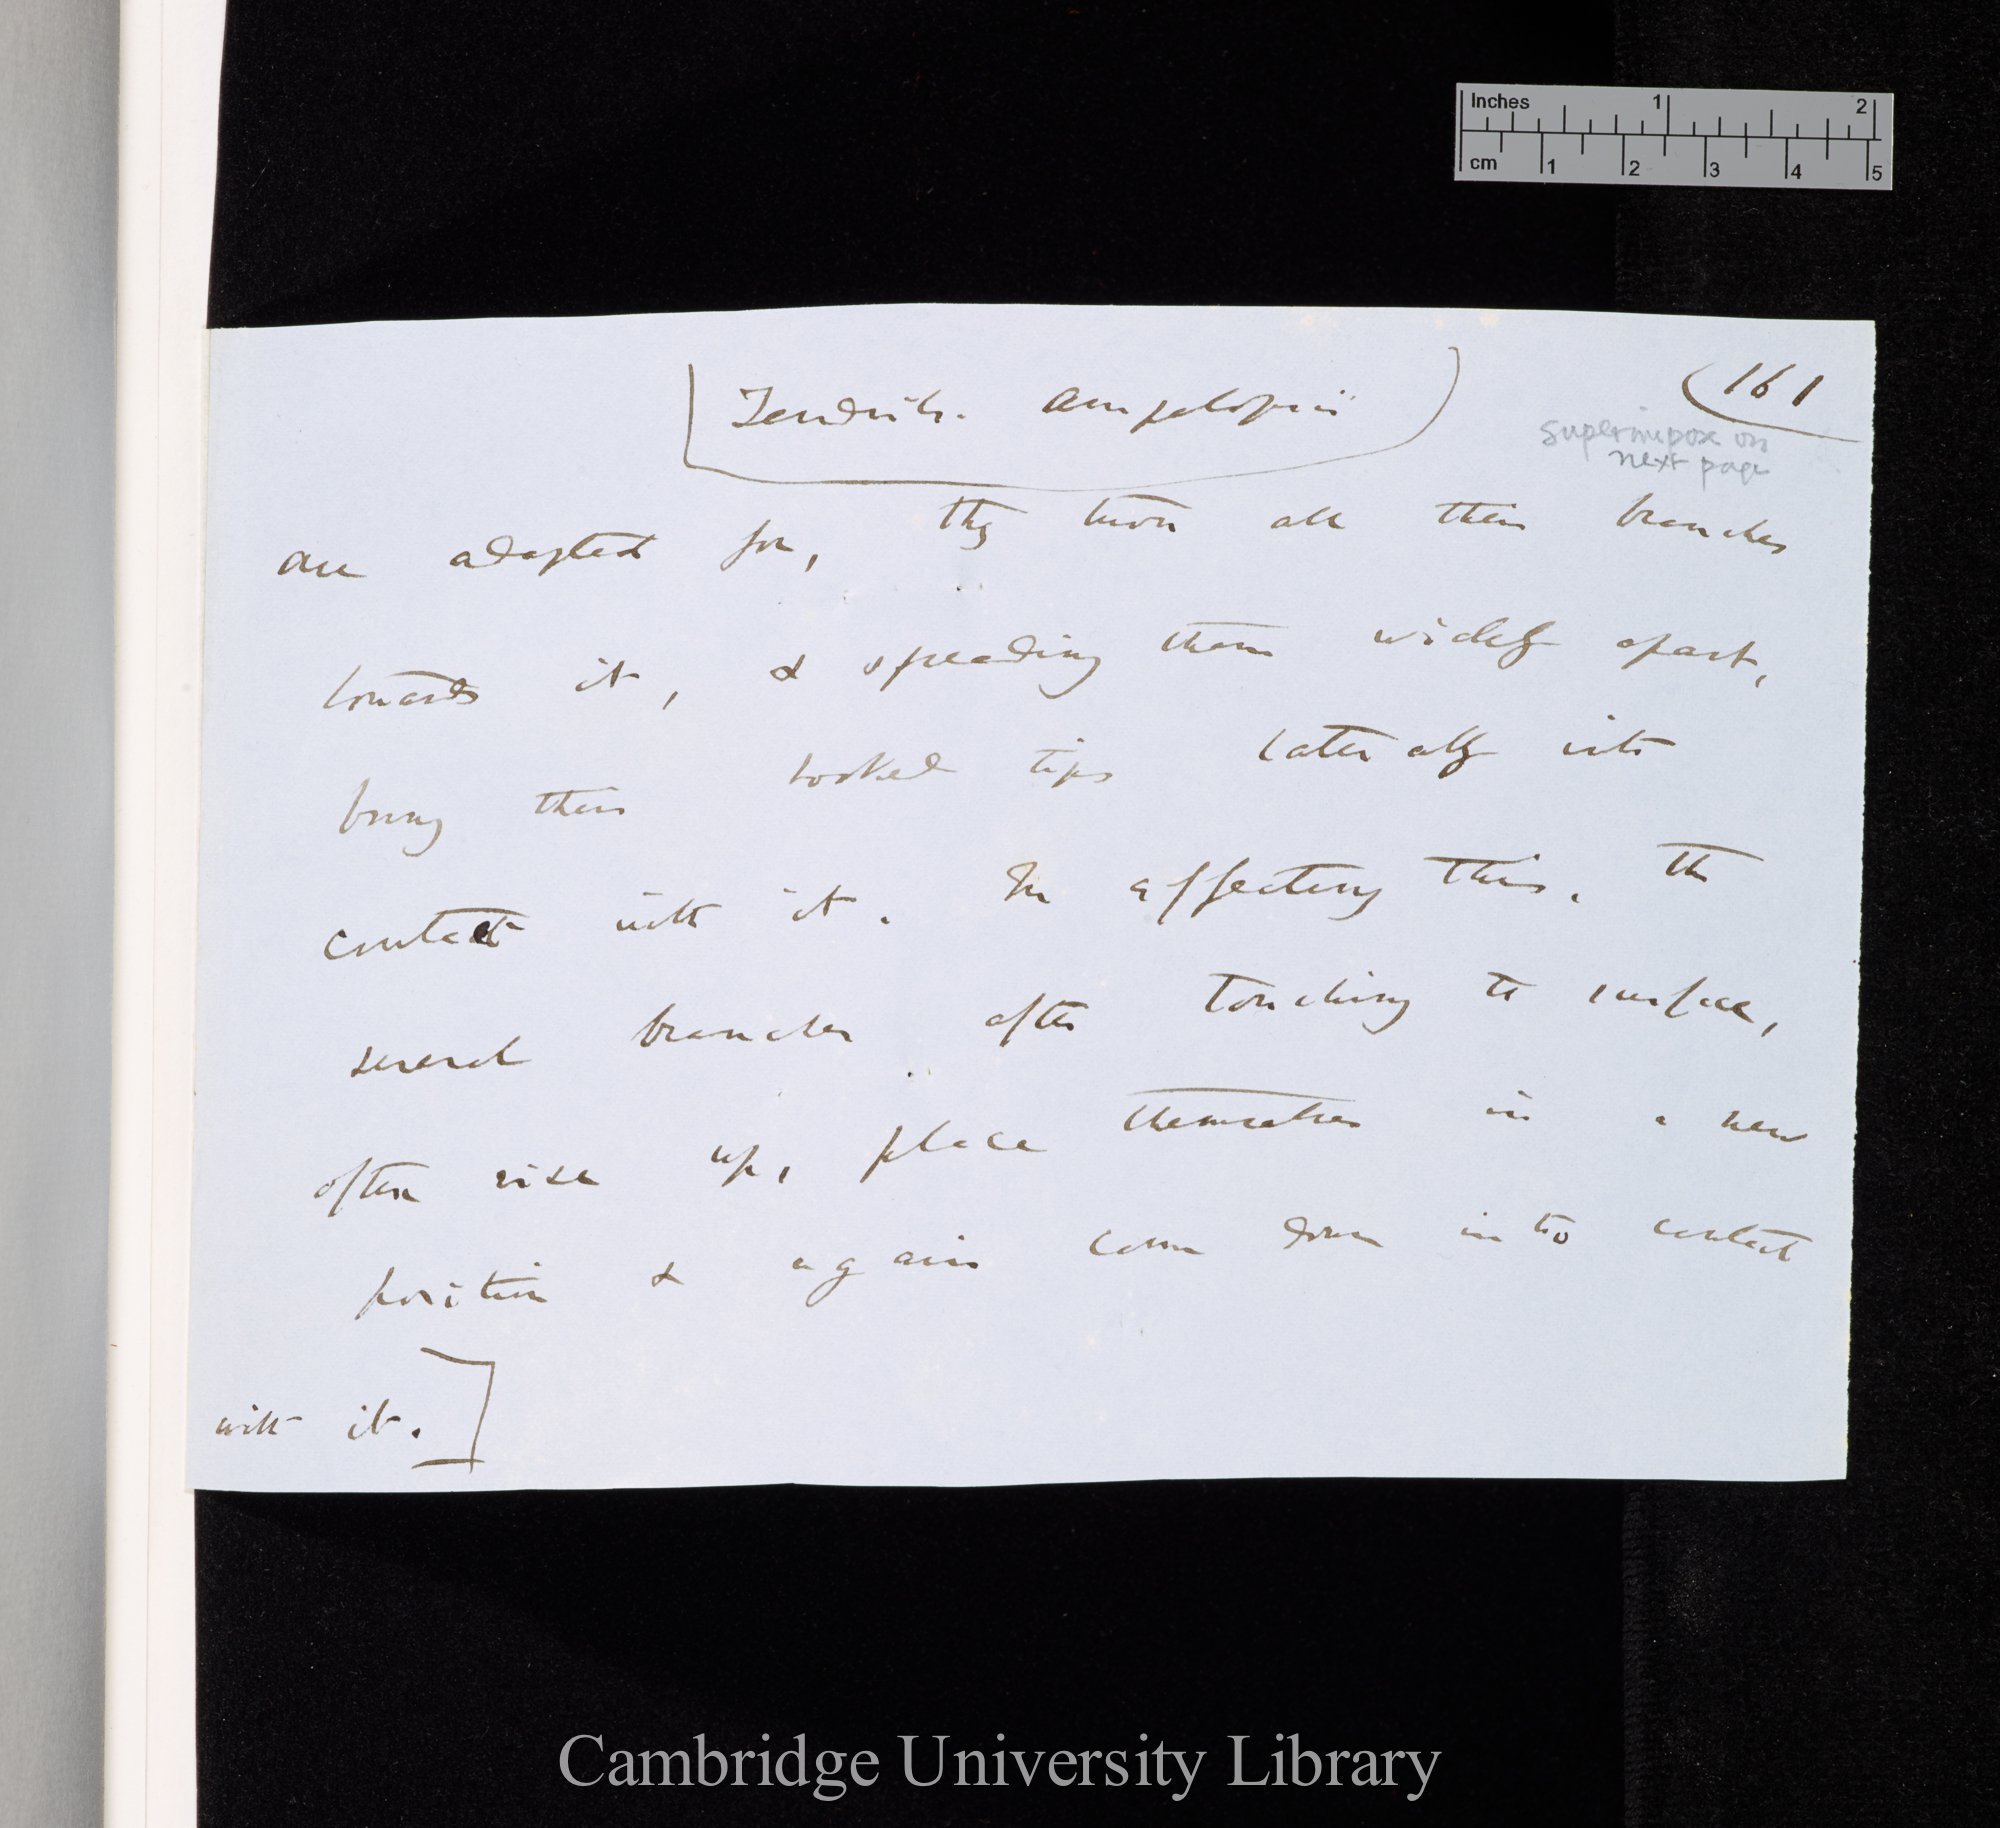 Inches 1 2
cm 1 2 3 4 5
161
Tendrils. Ampelopsis
superimpose on
next page
are adapted for, they turn all their branches
towards it, & spreading them widely apart,
bring their hooked tips laterally into
contact with it. In effecting this, the
several branches after touching the surface,
often rise up, place themselves in a new
position & again come down into contact
with it.]
Cambridge University Library